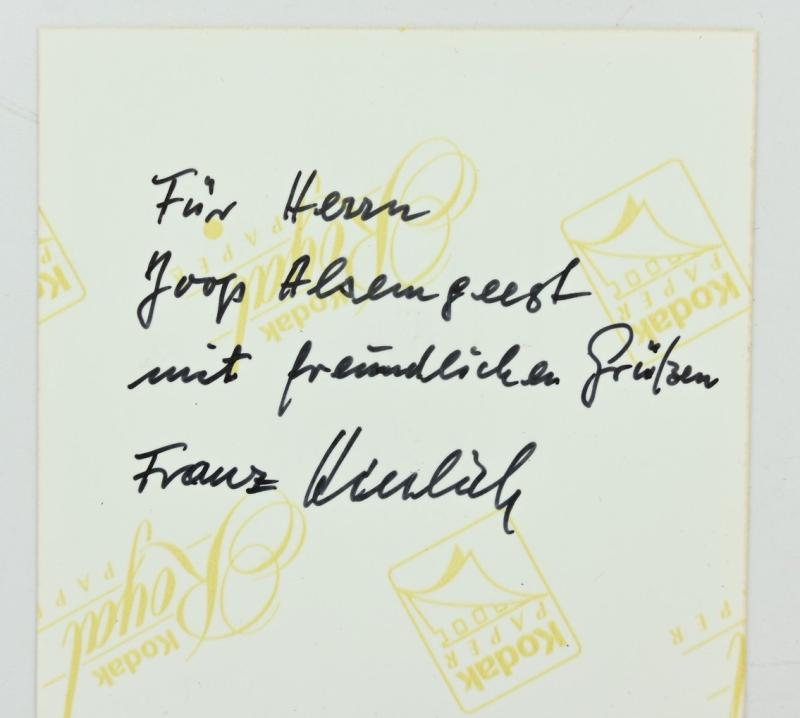 Für Herrn
Joop Alsemgeest
mit freundlichen Grüßen
Franz
Kodak
Royal
PAPER
Kodak
PAPER
Kodak
Royal
PAPER
Kodak
PAPER
Kodak
PAPER